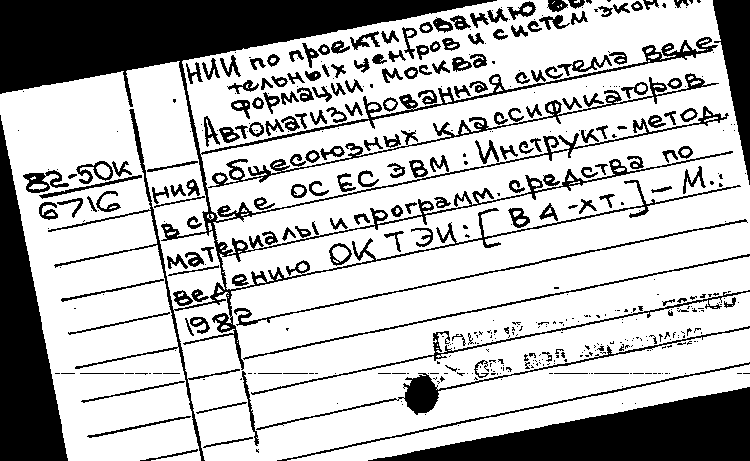 НИИ по проектированию
тельных центров и систем экон. и
формации. Москва.
Автоматизированная система веде-
82-50К
671G
ния общесоюзных классификаторов
в среде ОС ЕС ЭВМ: Инструкт.-метод.
материалы и программ. средства по
ведению ОК ТЭИ: [В 4-хт.].- М.:
1982.